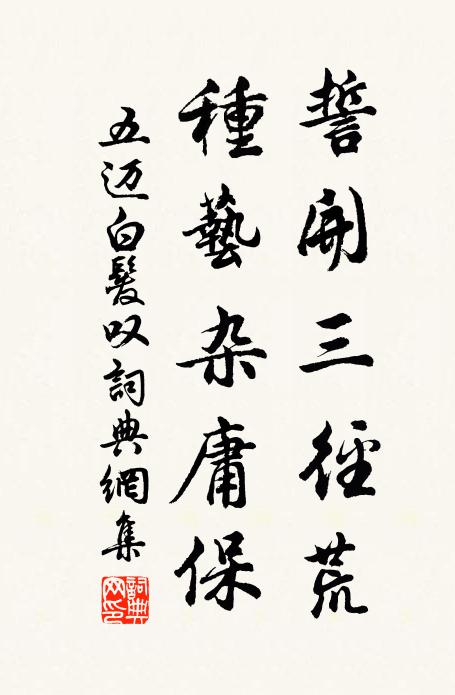 誓開三徑荒
種藝杂庸保
五迈白髮叹詞典網集
詞典网印